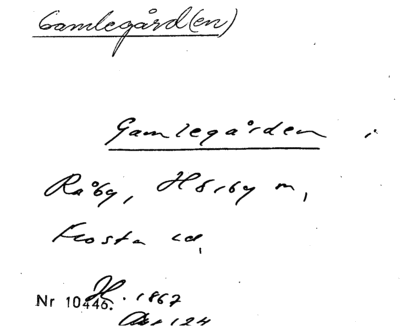 Gamlegård(en)
Gamlegården i
Råby, Hörby sn,
Frosta hd,
Nr 10446. H. 1867
124